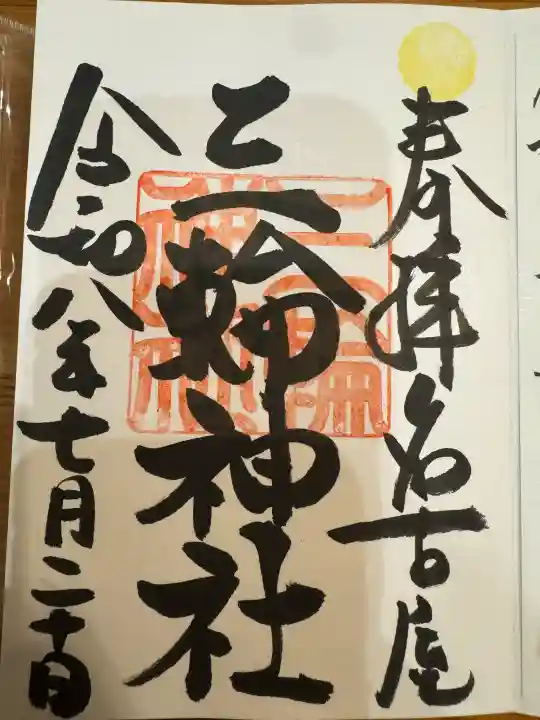 奉拝 名古屋
三輪神社
令和八年七月二十日
三輪神社